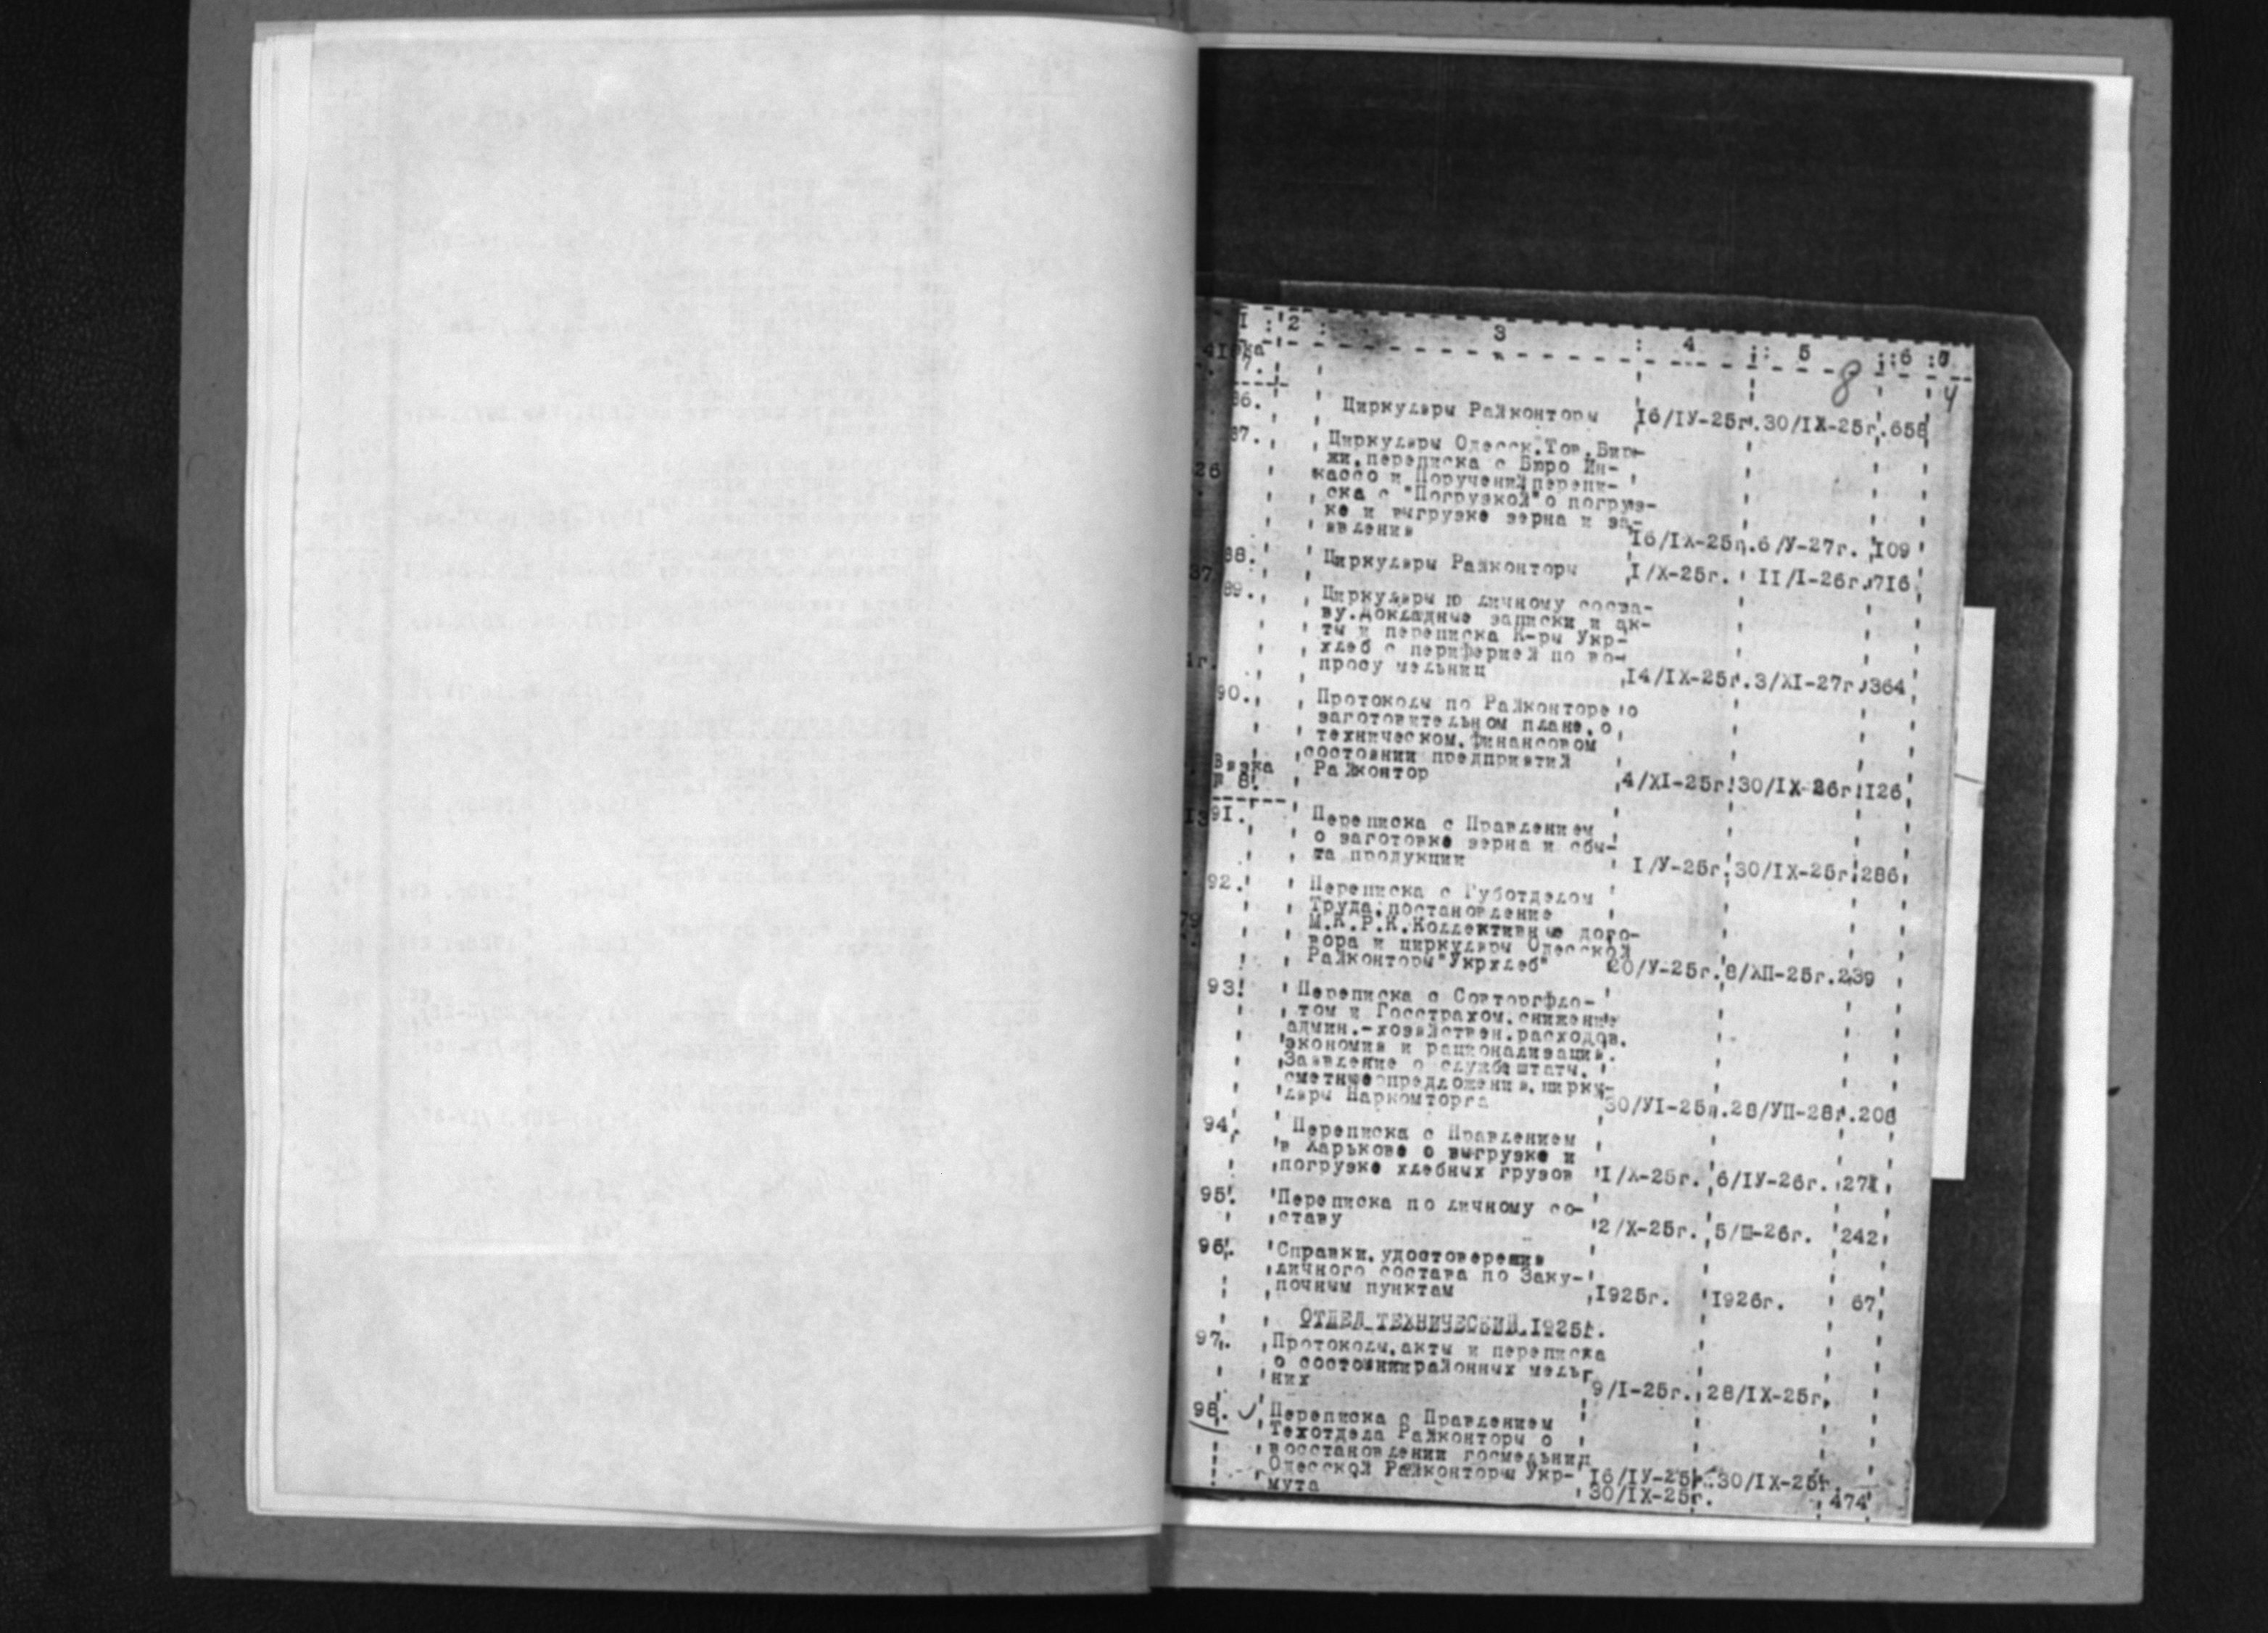 I : 2 : 3 : 4 : 5 : 6 : 7
8
4
7.
86. Циркуляры Райконторы 16/IУ-25г. 30/IХ-25г. 658
87. Циркуляры Одесск.Тов.Бир-
жи,переписка с Бюро Ин-
кассо и Поручений,перепи-
ска с "Погрузкой" о погруз-
ке и выгрузке зерна и за-
явления 16/IХ-25г. 6/У-27г. 109
88. Циркуляры Райконторы I/Х-25г. II/I-26г. 716
89. Циркуляры по личному соста-
ву.Докладные записки и ак-
ты и переписка К-ры Укр-
хлеб с периферией по во-
просу мельниц 14/IХ-25г. 3/ХI-27г. 364
90. Протоколы по Райконторе о
заготовительном плане, о
техническом, финансовом
состоянии предприятий
Райконтор 4/ХI-25г. 30/IХ-26г. 126
Вязка
№ 8.
91. Переписка с Правлением
о заготовке зерна и сбы-
та продукции I/У-25г. 30/IХ-25г. 286
92. Переписка с Губотделом
Труда,постановление
М.К.Р.К.Коллективные дого-
вора и циркуляры Одесской
Райконторы "Укрхлеб" 20/У-25г. 8/ХП-25г. 239
93. Переписка с Совторгфло-
том и Госстрахом,снижение
админ.-хозяйствен.расходов,
экономия и рационализация.
Заявление о службе,штаты,
сметные предложения, цирку-
ляры Наркомторга 30/УI-25г. 28/УП-28г. 208
94. Переписка с Правлением
в Харькове о выгрузке и
погрузке хлебных грузов I/Х-25г. 6/IУ-26г. 271
95. Переписка по личному со-
ставу 2/Х-25г. 5/Ш-26г. 242
96. Справки, удостоверения
личного состава по Заку-
почным пунктам 1925г. 1926г. 67
ОТДЕЛ ТЕХНИЧЕСКИЙ 1925г.
97. Протоколы,акты и переписка
о состоянии районных мельг
них 9/I-25г. 28/IХ-25г.
98. Переписка с Правлением
Техотдела Райконторы о
восстановлении госмельниц
Одесской Райконторы Укр- 16/IУ-25г. 30/IХ-25г.
мута 30/IХ-25г. 474